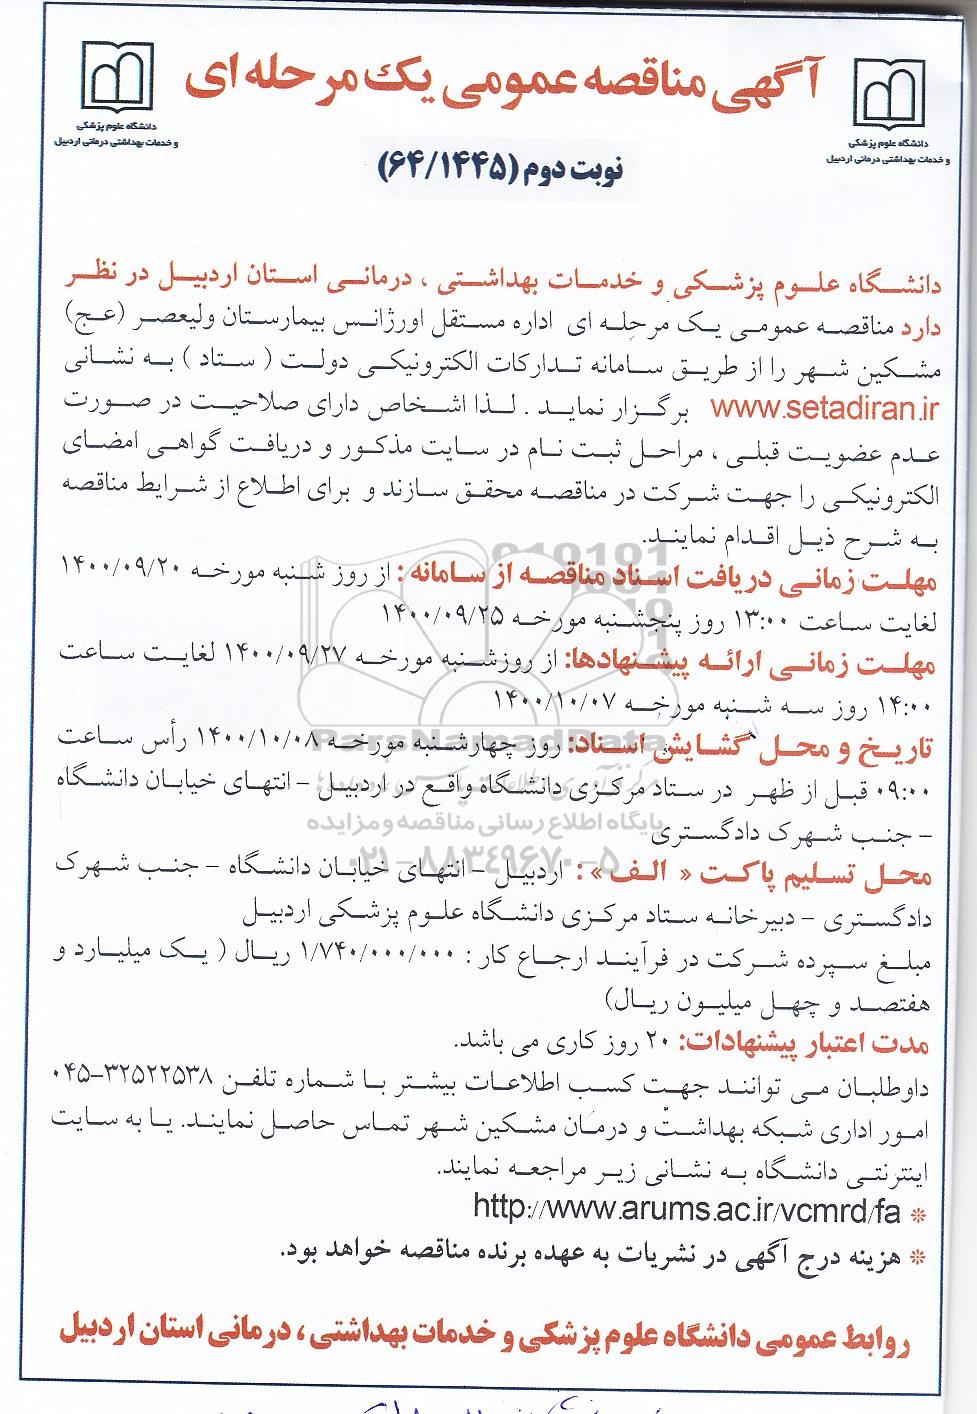 آگهی مناقصه عمومی یک مرحله ای
دانشگاه علوم پزشکی
و خدمات بهداشتی درمانی اردبیل
دانشگاه علوم پزشکی
و خدمات بهداشتی درمانی اردبیل
نوبت دوم (۶۴/۱۴۴۵)
دانشگاه علوم پزشکی و خدمات بهداشتی ، درمانی استان اردبیل در نظر
دارد مناقصه عمومی یک مرحله ای اداره مستقل اورژانس بیمارستان ولیعصر (عج)
مشکین شهر را از طریق سامانه تدارکات الکترونیکی دولت ( ستاد ) به نشانی
www.setadiran.ir برگزار نماید . لذا اشخاص دارای صلاحیت در صورت
عدم عضویت قبلی ، مراحل ثبت نام در سایت مذکور و دریافت گواهی امضای
الکترونیکی را جهت شرکت در مناقصه محقق سازند و برای اطلاع از شرایط مناقصه
به شرح ذیل اقدام نمایند.
مهلت زمانی دریافت اسناد مناقصه از سامانه : از روز شنبه مورخه ۱۴۰۰/۰۹/۲۰
لغایت ساعت ۱۳:۰۰ روز پنجشنبه مورخه ۱۴۰۰/۰۹/۲۵
مهلت زمانی ارائه پیشنهادها: از روزشنبه مورخه ۱۴۰۰/۰۹/۲۷ لغایت ساعت
۱۴:۰۰ روز سه شنبه مورخه ۱۴۰۰/۱۰/۰۷
تاریخ و محل گشایش اسناد: روز چهارشنبه مورخه ۱۴۰۰/۱۰/۰۸ رأس ساعت
۰۹:۰۰ قبل از ظهر در ستاد مرکزی دانشگاه واقع در اردبیل – انتهای خیابان دانشگاه
– جنب شهرک دادگستری
محل تسلیم پاکت « الف» : اردبیل – انتهای خیابان دانشگاه – جنب شهرک
دادگستری – دبیرخانه ستاد مرکزی دانشگاه علوم پزشکی اردبیل
مبلغ سپرده شرکت در فرآیند ارجاع کار : ۱/۷۴۰/۰۰۰/۰۰۰ ریال ( یک میلیارد و
هفتصد و چهل میلیون ریال)
مدت اعتبار پیشنهادات: ۲۰ روز کاری می باشد.
داوطلبان می توانند جهت کسب اطلاعات بیشتر با شماره تلفن ۳۲۵۲۲۵۳۸-۰۴۵
امور اداری شبکه بهداشت و درمان مشکین شهر تماس حاصل نمایند. یا به سایت
اینترنتی دانشگاه به نشانی زیر مراجعه نمایند.
* http://www.arums.ac.ir/vcmrd/fa
* هزینه درج آگهی در نشریات به عهده برنده مناقصه خواهد بود.
روابط عمومی دانشگاه علوم پزشکی و خدمات بهداشتی ، درمانی استان اردبیل
ParsNamadData
پایگاه اطلاع رسانی مناقصه و مزایده
۰۲۱-۸۸۳۴۹۶۷۰-۵